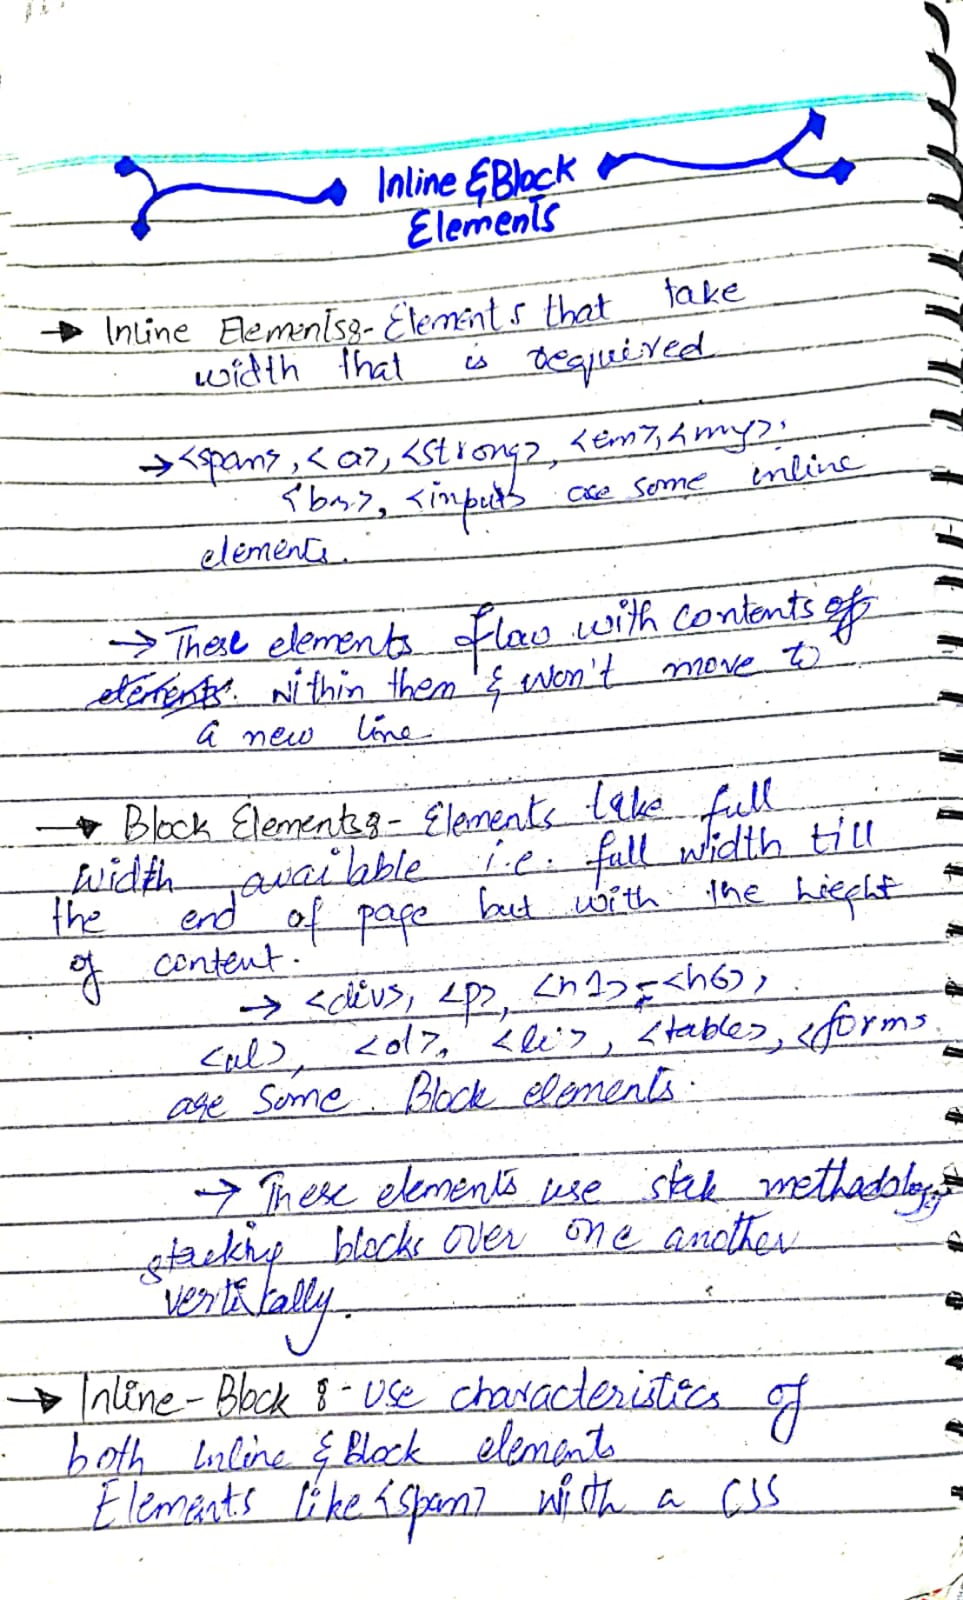 Inline & Block
Elements
→ Inline Elements:- Elements that take
width that is required
→ <span>, <a>, <strong>, <em>, <img>,
<br>, <input> are some inline
elements.
→ These elements flow with contents of
elements. within them & won't move to
a new line
→ Block Elements:- Elements take full
width available i.e. full width till
the end of page but with the hieght
of content.
→ <div>, <p>, <h1>-<h6>,
<ul>, <ol>, <li>, <table>, <form>
are some Block elements.
→ These elements use stak methadology
stacking blocks over one another
vertikally.
→ Inline-Block :- Use characteristics of
both Inline & Block elements
Elements like <span> with a CSS